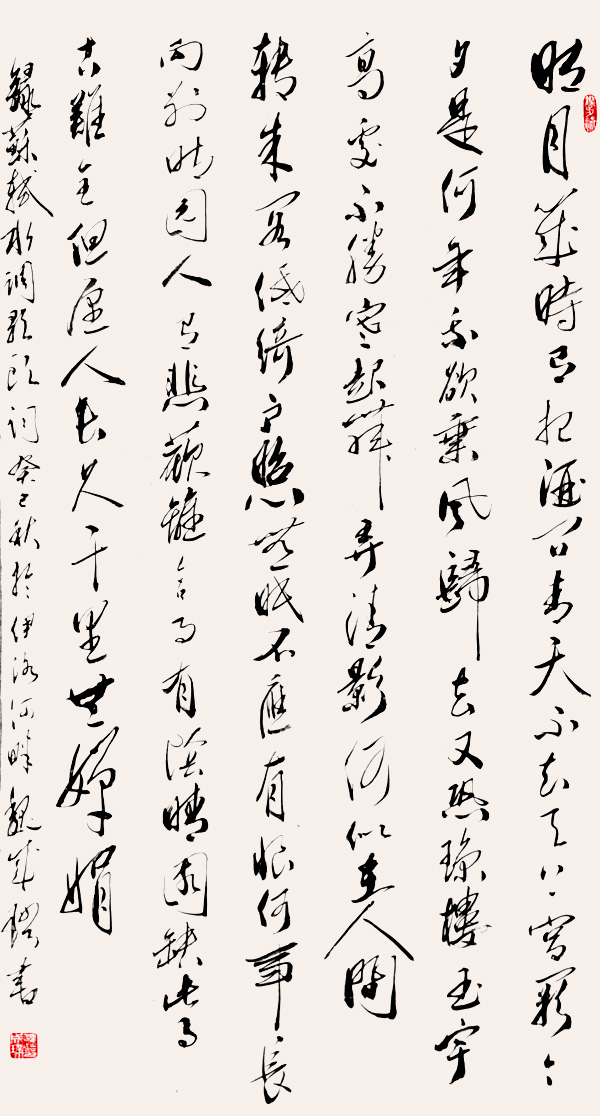 明月幾時有把酒問青天不知天上宮闕今
夕是何年我欲乘風歸去又恐瓊樓玉宇
高處不勝寒起舞弄清影何似在人間
轉朱閣低綺户照無眠不應有恨何事長
向別時圓人有悲歡離合月有陰晴圓缺此事
古難全但願人長久千里共嬋娟
錄蘇軾水調歌頭詞癸巳秋於伊洛河畔魏成書